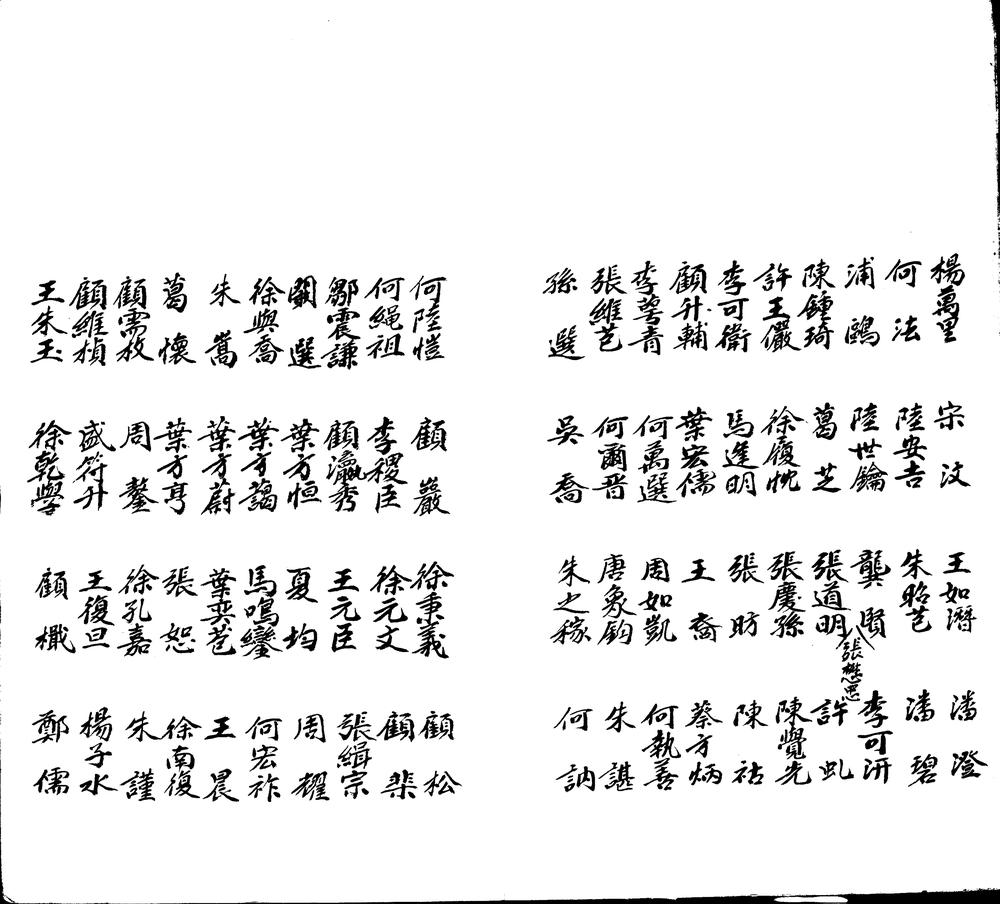 楊萬里 宋汶 王如潛 潘澄
何法 陸安吉 朱昭芑 潘碧
浦鷗 陸世鑰 龔賢 李可汧
張懋思
陳鍾琦 葛芝 張道明 許虬
許王儼 徐履忱 張慶孫 陳覺先
李可衛 馬進明 張昉 陳祜
顧升輔 葉宏儒 王裔 蔡方炳
李萼青 何萬選 周如凱 何執善
張維芑 何爾晋 唐象鈞 朱諶
孫選 吳喬 朱之稼 何訥
何陸愷 顧巖 徐秉義 顧松
何繩祖 李稷臣 徐元文 顧棐
鄒震謙 顧瀛秀 王元臣 張緝宗
選 葉方恒 夏均 周耀
徐與喬 葉方藹 馬鳴鑾 何宏祚
朱嵩 葉方蔚 葉奕苞 王晨
葛懷 葉方亨 張恕 徐南復
顧需枚 周鏊 徐孔嘉 朱謹
顧維楨 盛符升 王復旦 楊子水
王朱玉 徐乾學 顧 鄭儒